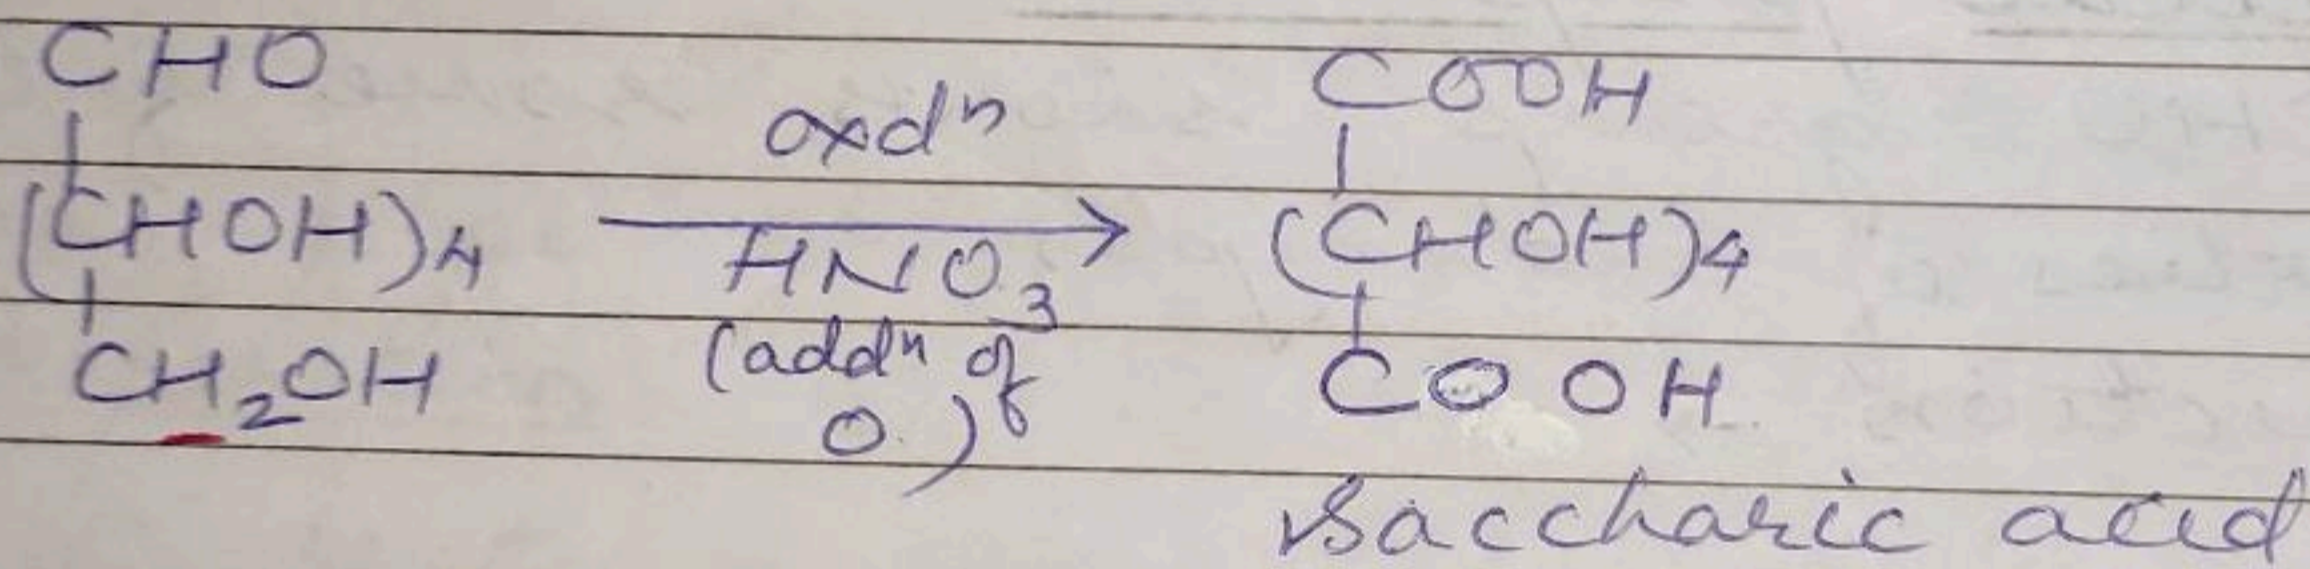 CHO
|
(CHOH)4
|
CH2OH
oxdⁿ
HNO3
(addⁿ of
O.)
COOH
|
(CHOH)4
|
COOH
saccharic acid